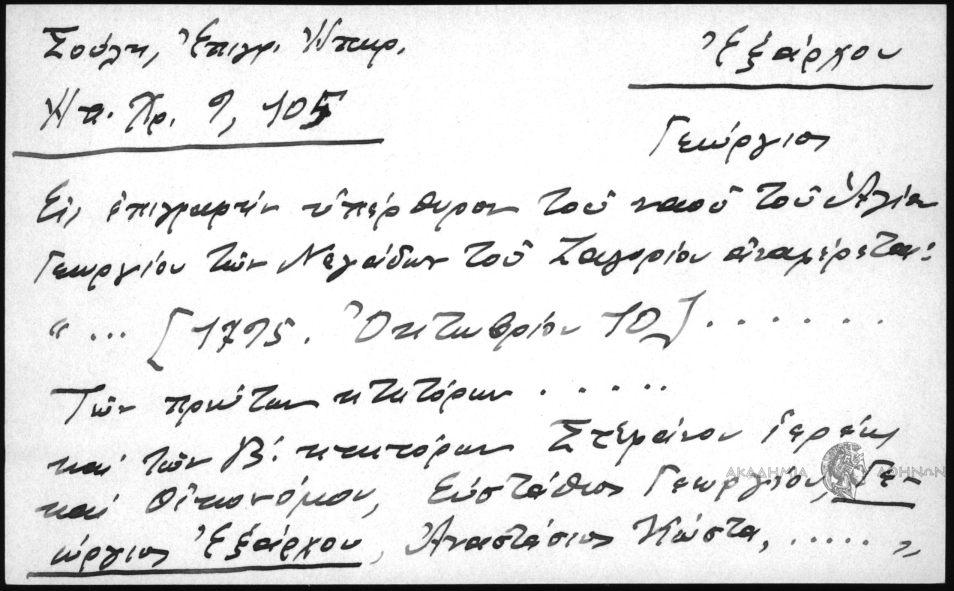 Σούλη, Ἐπιγρ. Ἠπειρ.
Ἠπ. Χρ. 9, 105
Ἐξάρχου
Γεώργιος
Εἰς ἐπιγραφὴν ὑπέρθυρον τοῦ ναοῦ τοῦ Ἁγίου
Γεωργίου τῶν Νεγάδων τοῦ Ζαγορίου ἀναφέρεται:
"... [1795. Ὀκτωβρίου 10] .......
Τῶν πρώτων κτητόρων .....
καὶ τῶν β΄. κτητόρων Στεφάνου ἱερέως
καὶ Οἰκονόμου, Εὐστάθιος Γεωργίου, Γε-
ώργιος Ἐξάρχου, Ἀναστάσιος Κώστα, ..... "
ΑΚΑΔΗΜΙΑ ΑΘΗΝΩΝ